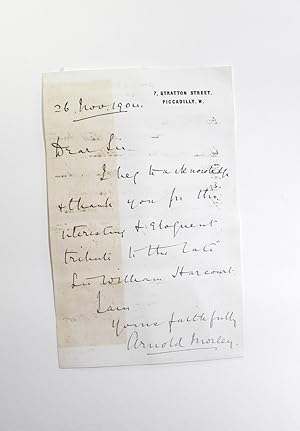 7, STRATTON STREET,
PICCADILLY. W.
26 Nov. 1904.
Dear Sir.
I beg to acknowledge
& thank you for this
interesting & eloquent
tribute to the late
Sir William Harcourt
I am
yours faithfully
Arnold Morley.